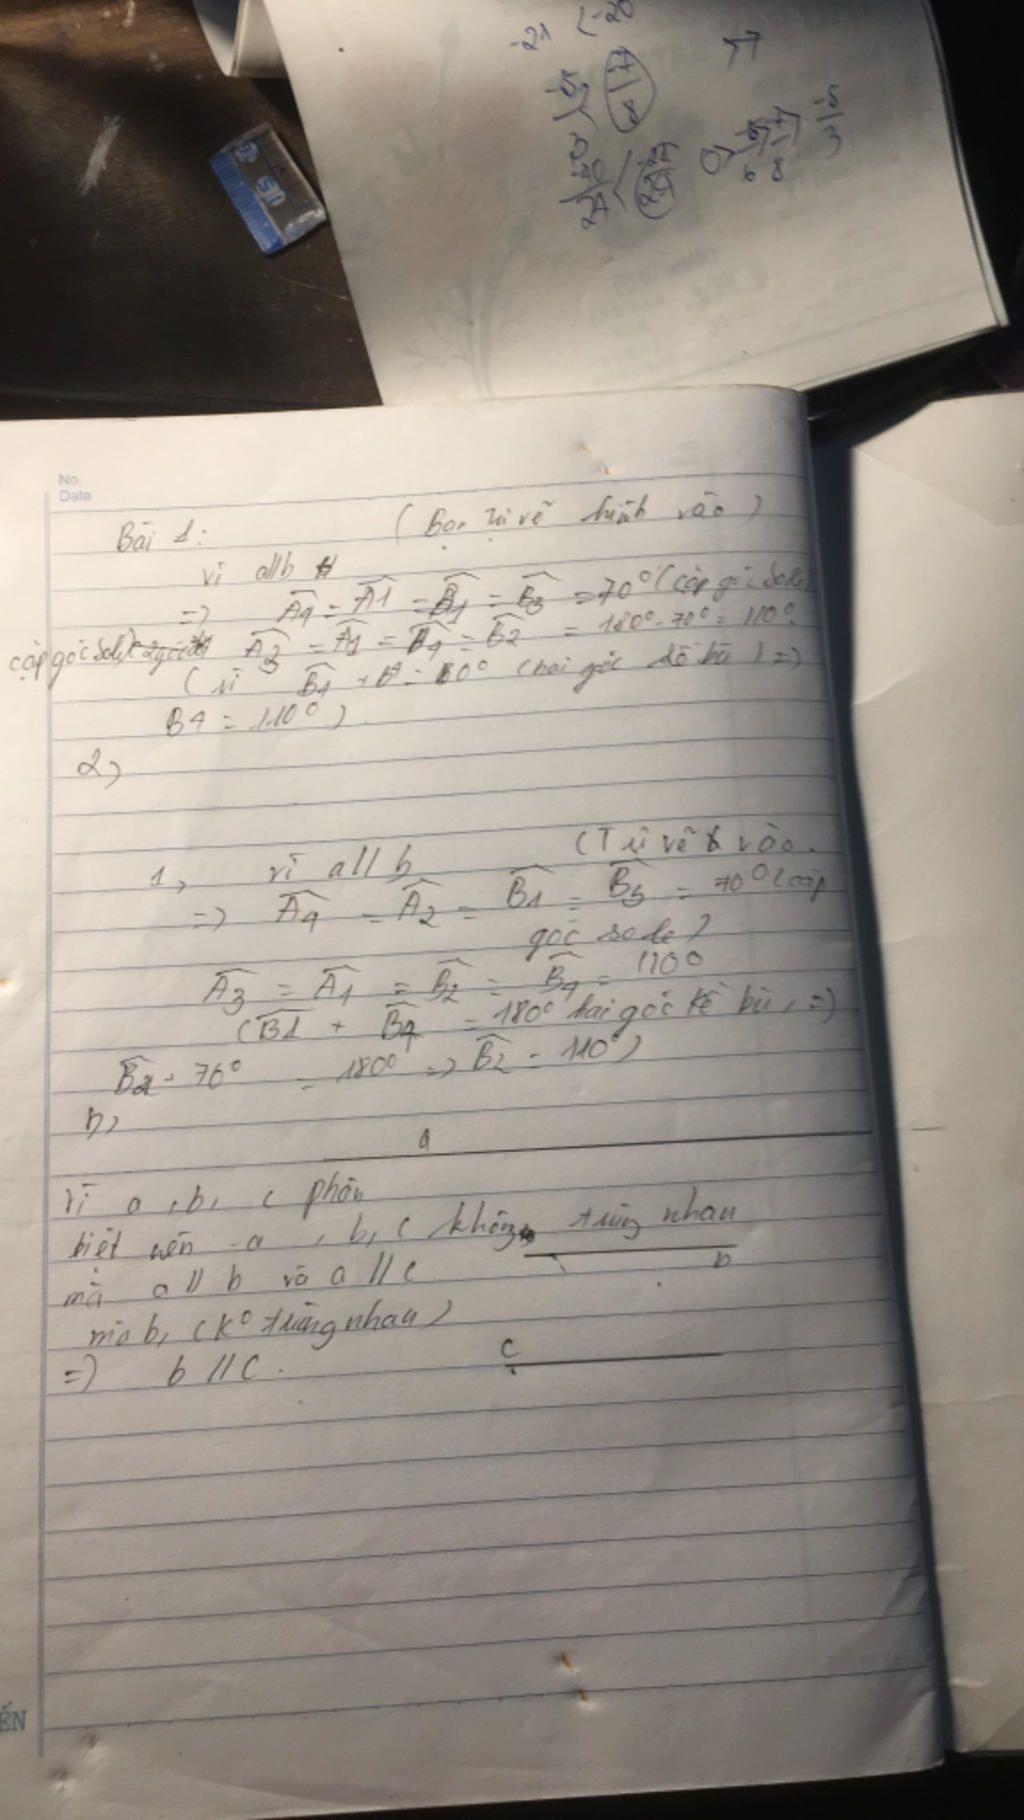 -21 < -20
No.
Date
Bài 1: (Bạn tự vẽ hình vào)
vì a//b
=> A4 = A1 = B1 = B3 = 70° (cặp góc sole)
cặp góc sole) A3 = A1 = B4 = B2 = 180° - 70° = 110°
(vì B1 + (hai góc bù) =>
B4 = 110°)
2,
(Tự vẽ vào.
1, vì a// b
=> A4 = A2 = B1 = B3 = 70° (cặp
góc sole)
A3 = A1 = B2 = B4 = 110°
(B1 + B4 = 180° hai góc kề bù, =>
70° = 180° => B2 = 110°)
b,
a
Vì a, b, c phân
biệt nên a, b, c không trùng nhau
b
mà a // b và a // c
mà b, c k° trùng nhau)
c
=> b // c.
ẾN